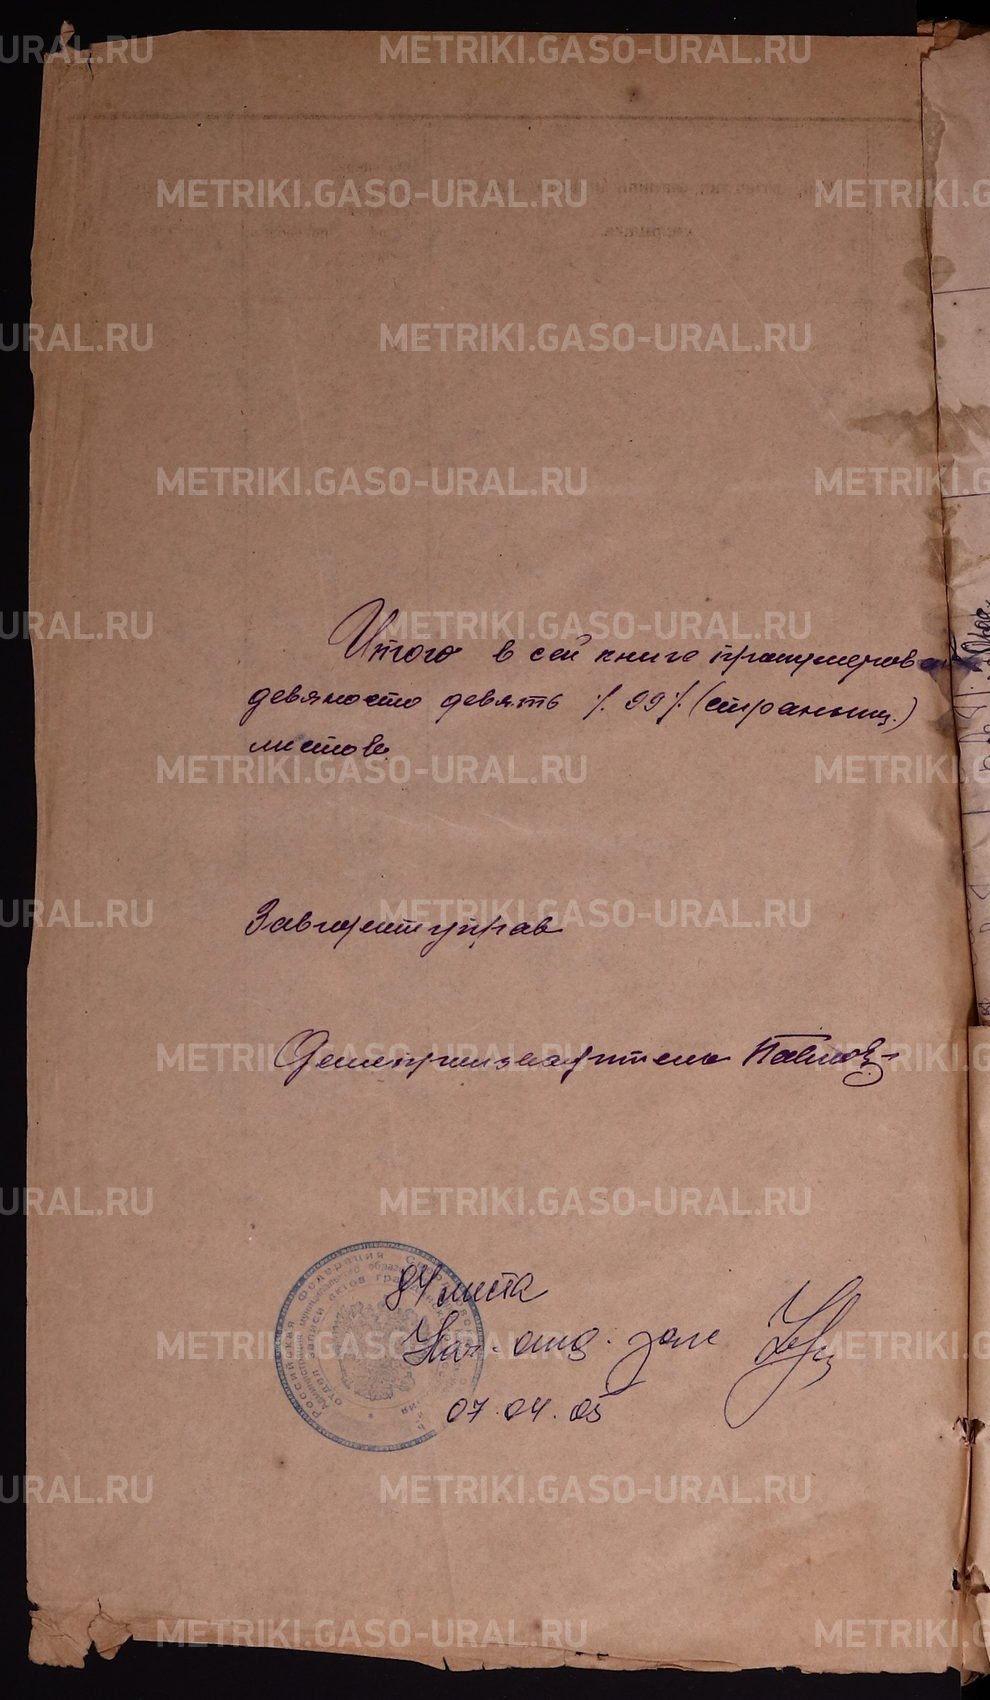 METRIKI.GASO-URAL.RU
Итого в сей книге пронумерован
девяносто девять ·/. 99 ·/. (страниц.)
листов.
Завгоротуправ
Делопроизводитель Павлов
84 листа
Нач. отд. загс
07.04.05
Российская Федерация
отдел записи актов